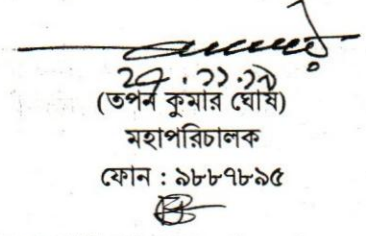 ২৭.১১.১৯
(তপন কুমার ঘোষ)
মহাপরিচালক
ফোন : ৯৮৮৭৮৯৫